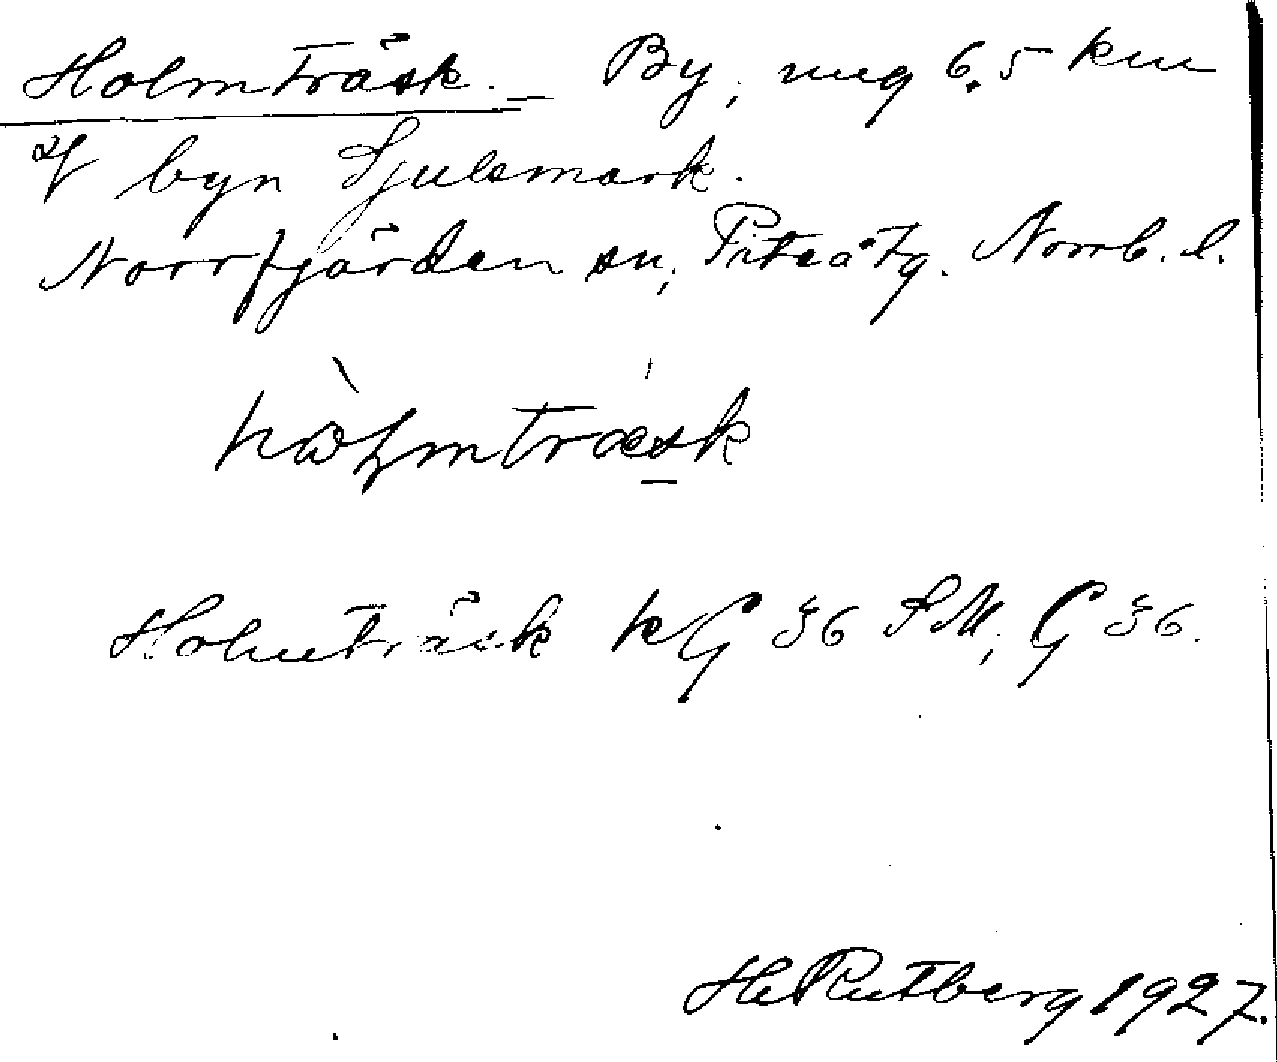 Holmträsk. _ By, ung 6.5 km
af byn Sjulsmark.
Norrfjärden sn, Piteå tg. Norrb. l.
hòɷɭmtræsk
Holmträsk kG 36 SM, G 36.
HeRutberg 1927.